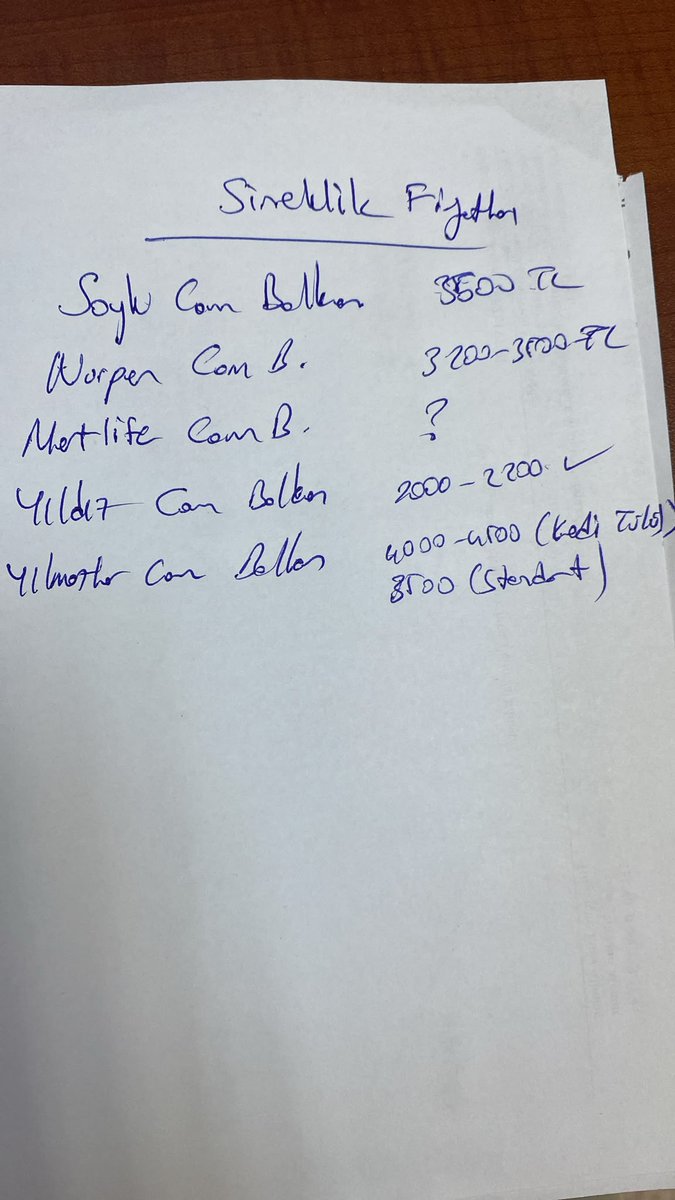 Sineklik Fiyatları
Soylu Cam Balkon 3500 TL
Norpen Cam B. 3200-3500 TL
Mertlife Cam B. ?
Yıldız Cam Balkon 2000-2200 ✓
Yılmazlar Cam Balkon 4000-4500 (Kedi Tülü)
3500 (Standart)